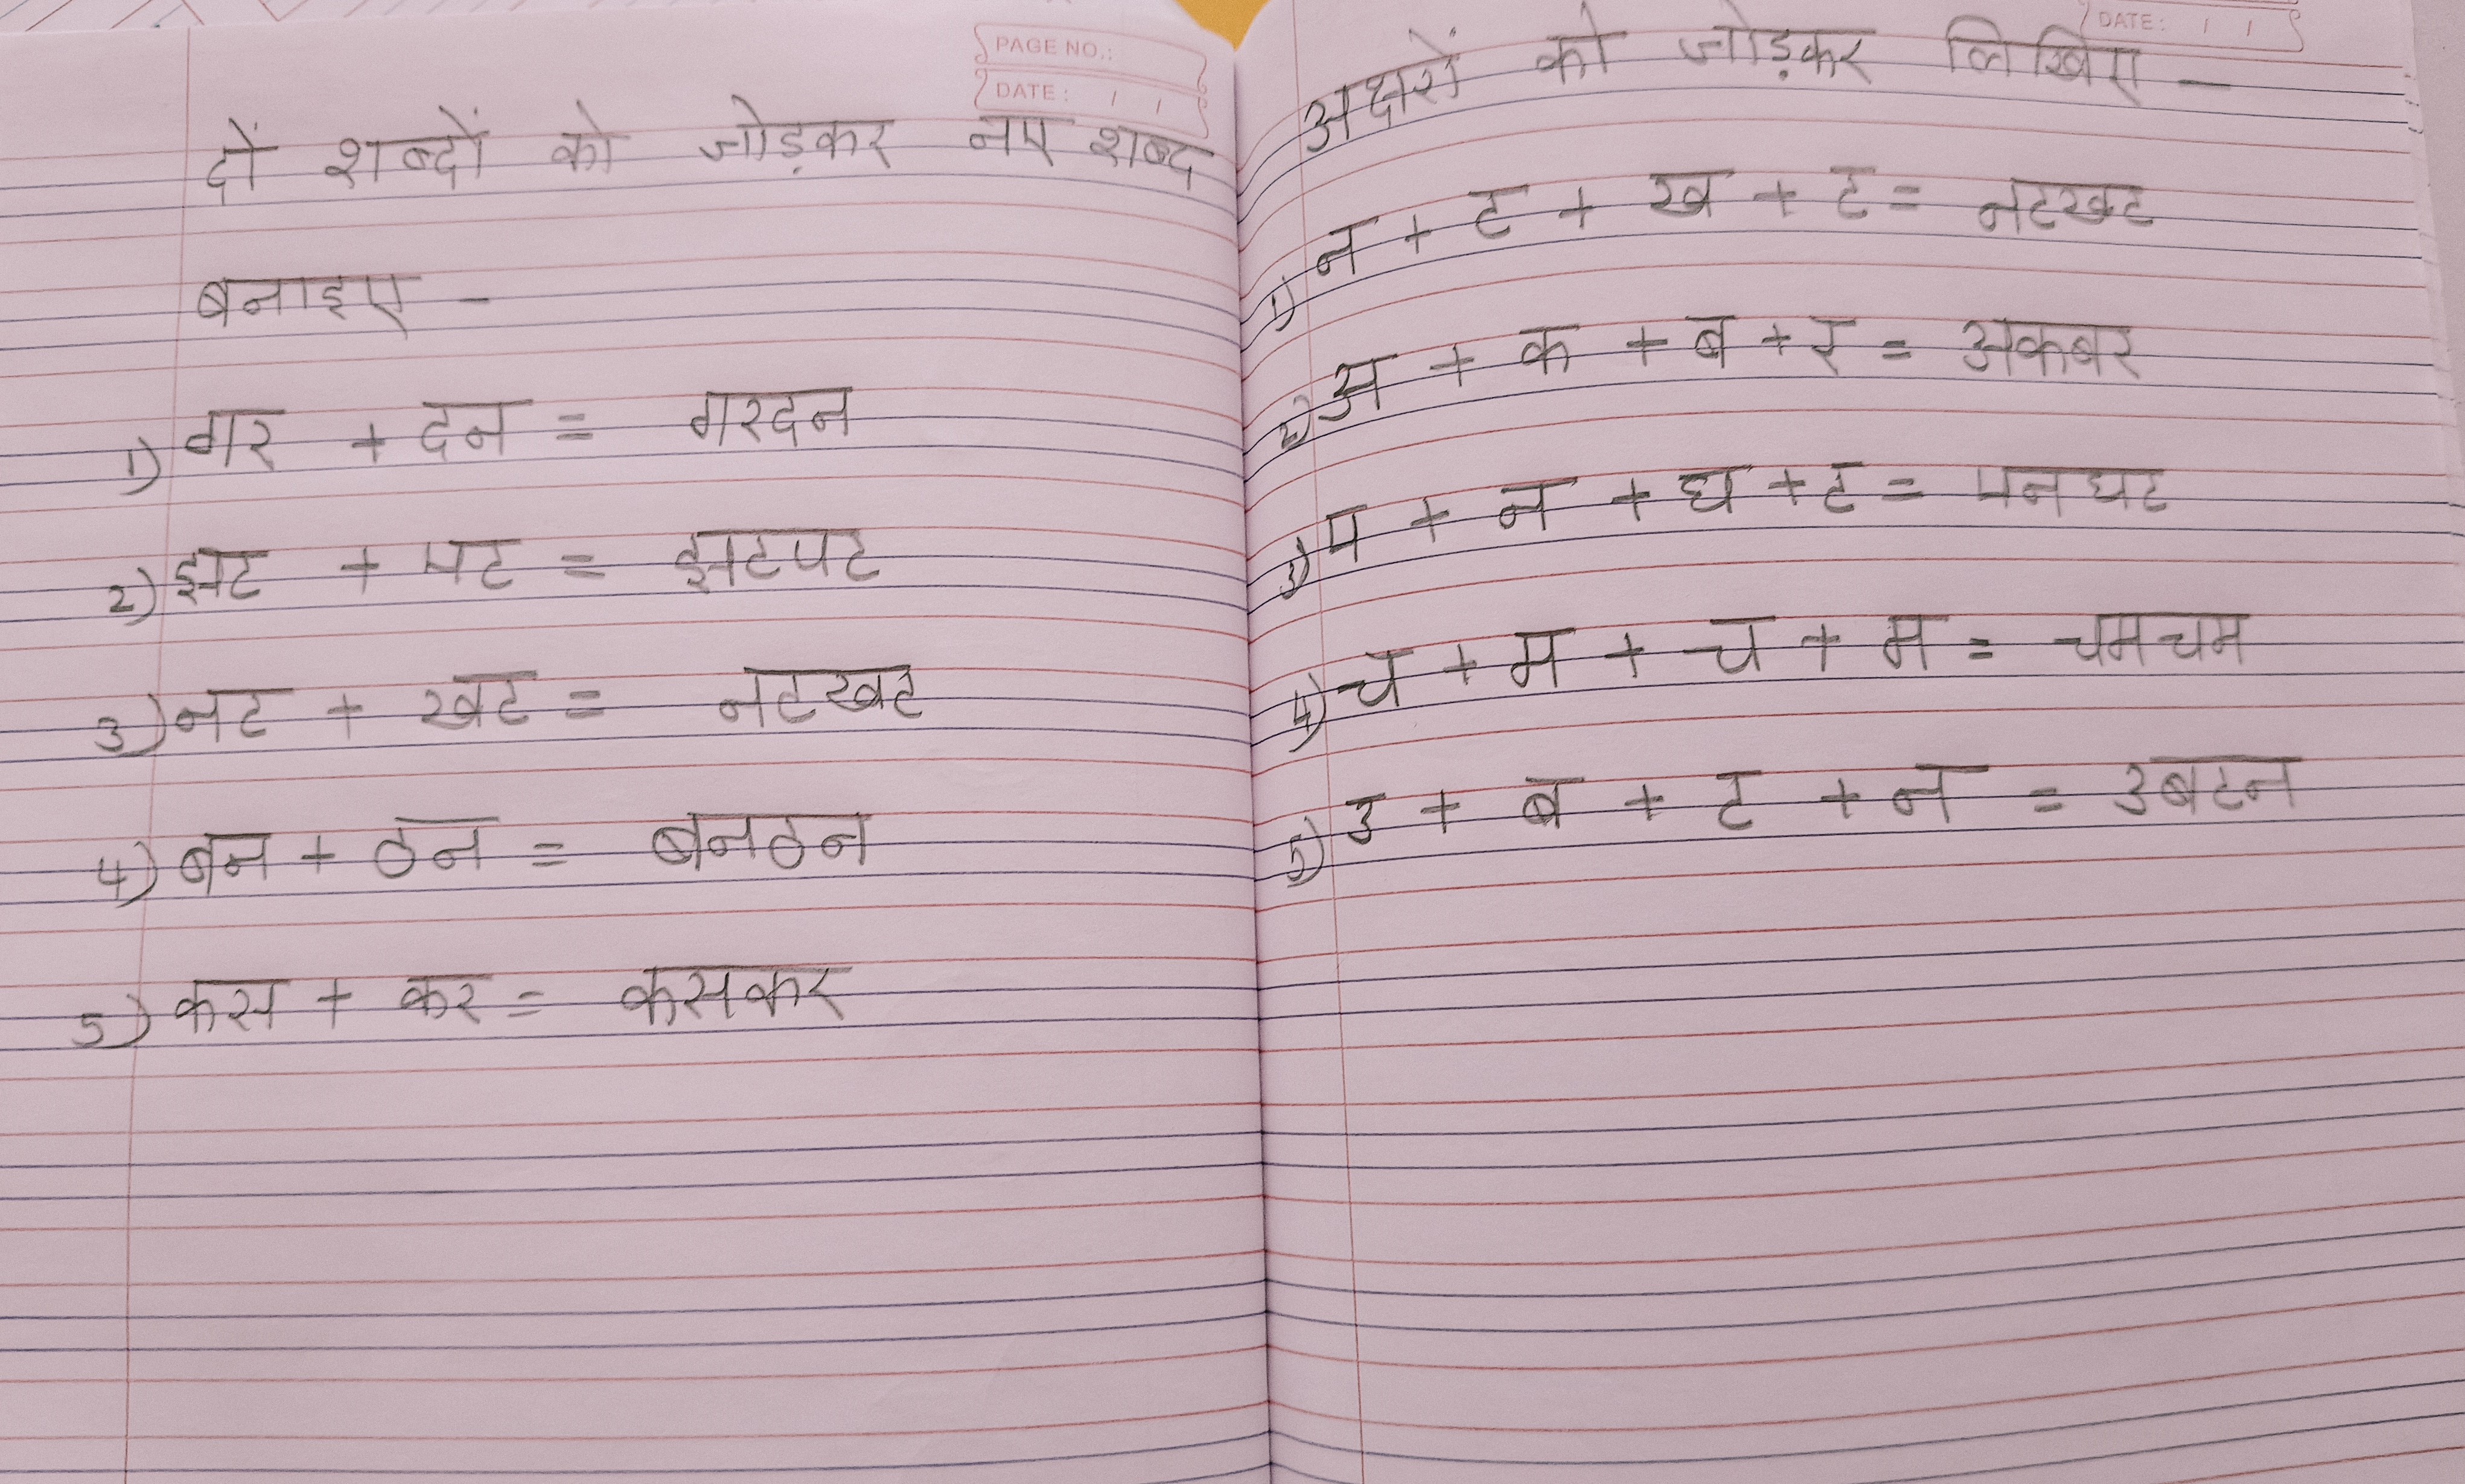 PAGE NO.:
DATE: / /
दों शब्दों को जोड़कर नए शब्द
बनाइए -
1) गर + दन = गरदन
2) झट + पट = झटपट
3) नट + खट = नटखट
4) बन + ठन = बनठन
5) कस + कर = कसकर
DATE: / /
अक्षरों को जोड़कर लिखिए -
1) न + ट + ख + ट = नटखट
2) अ + क + ब + र = अकबर
3) प + न + घ + ट = पनघट
4) च + म + च + म = चमचम
5) उ + ब + ट + न = उबटन